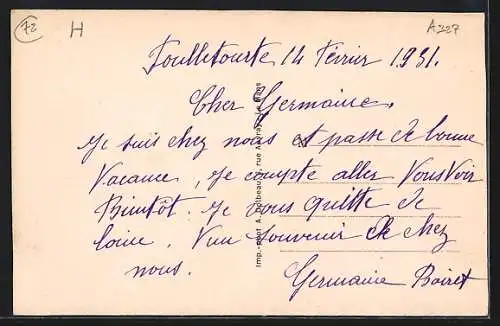 72 H A227
Foulletourte 14 Février 1931.
Cher Germaine.
Je suis chez nous et passe de bonne
Vacance, Je compte aller Vous Voir
Bientôt. Je vous quitte de
loine. Vun souvenir de chez
nous. Germaine Boiret
Imp.-phot A. Dolbeau, rue